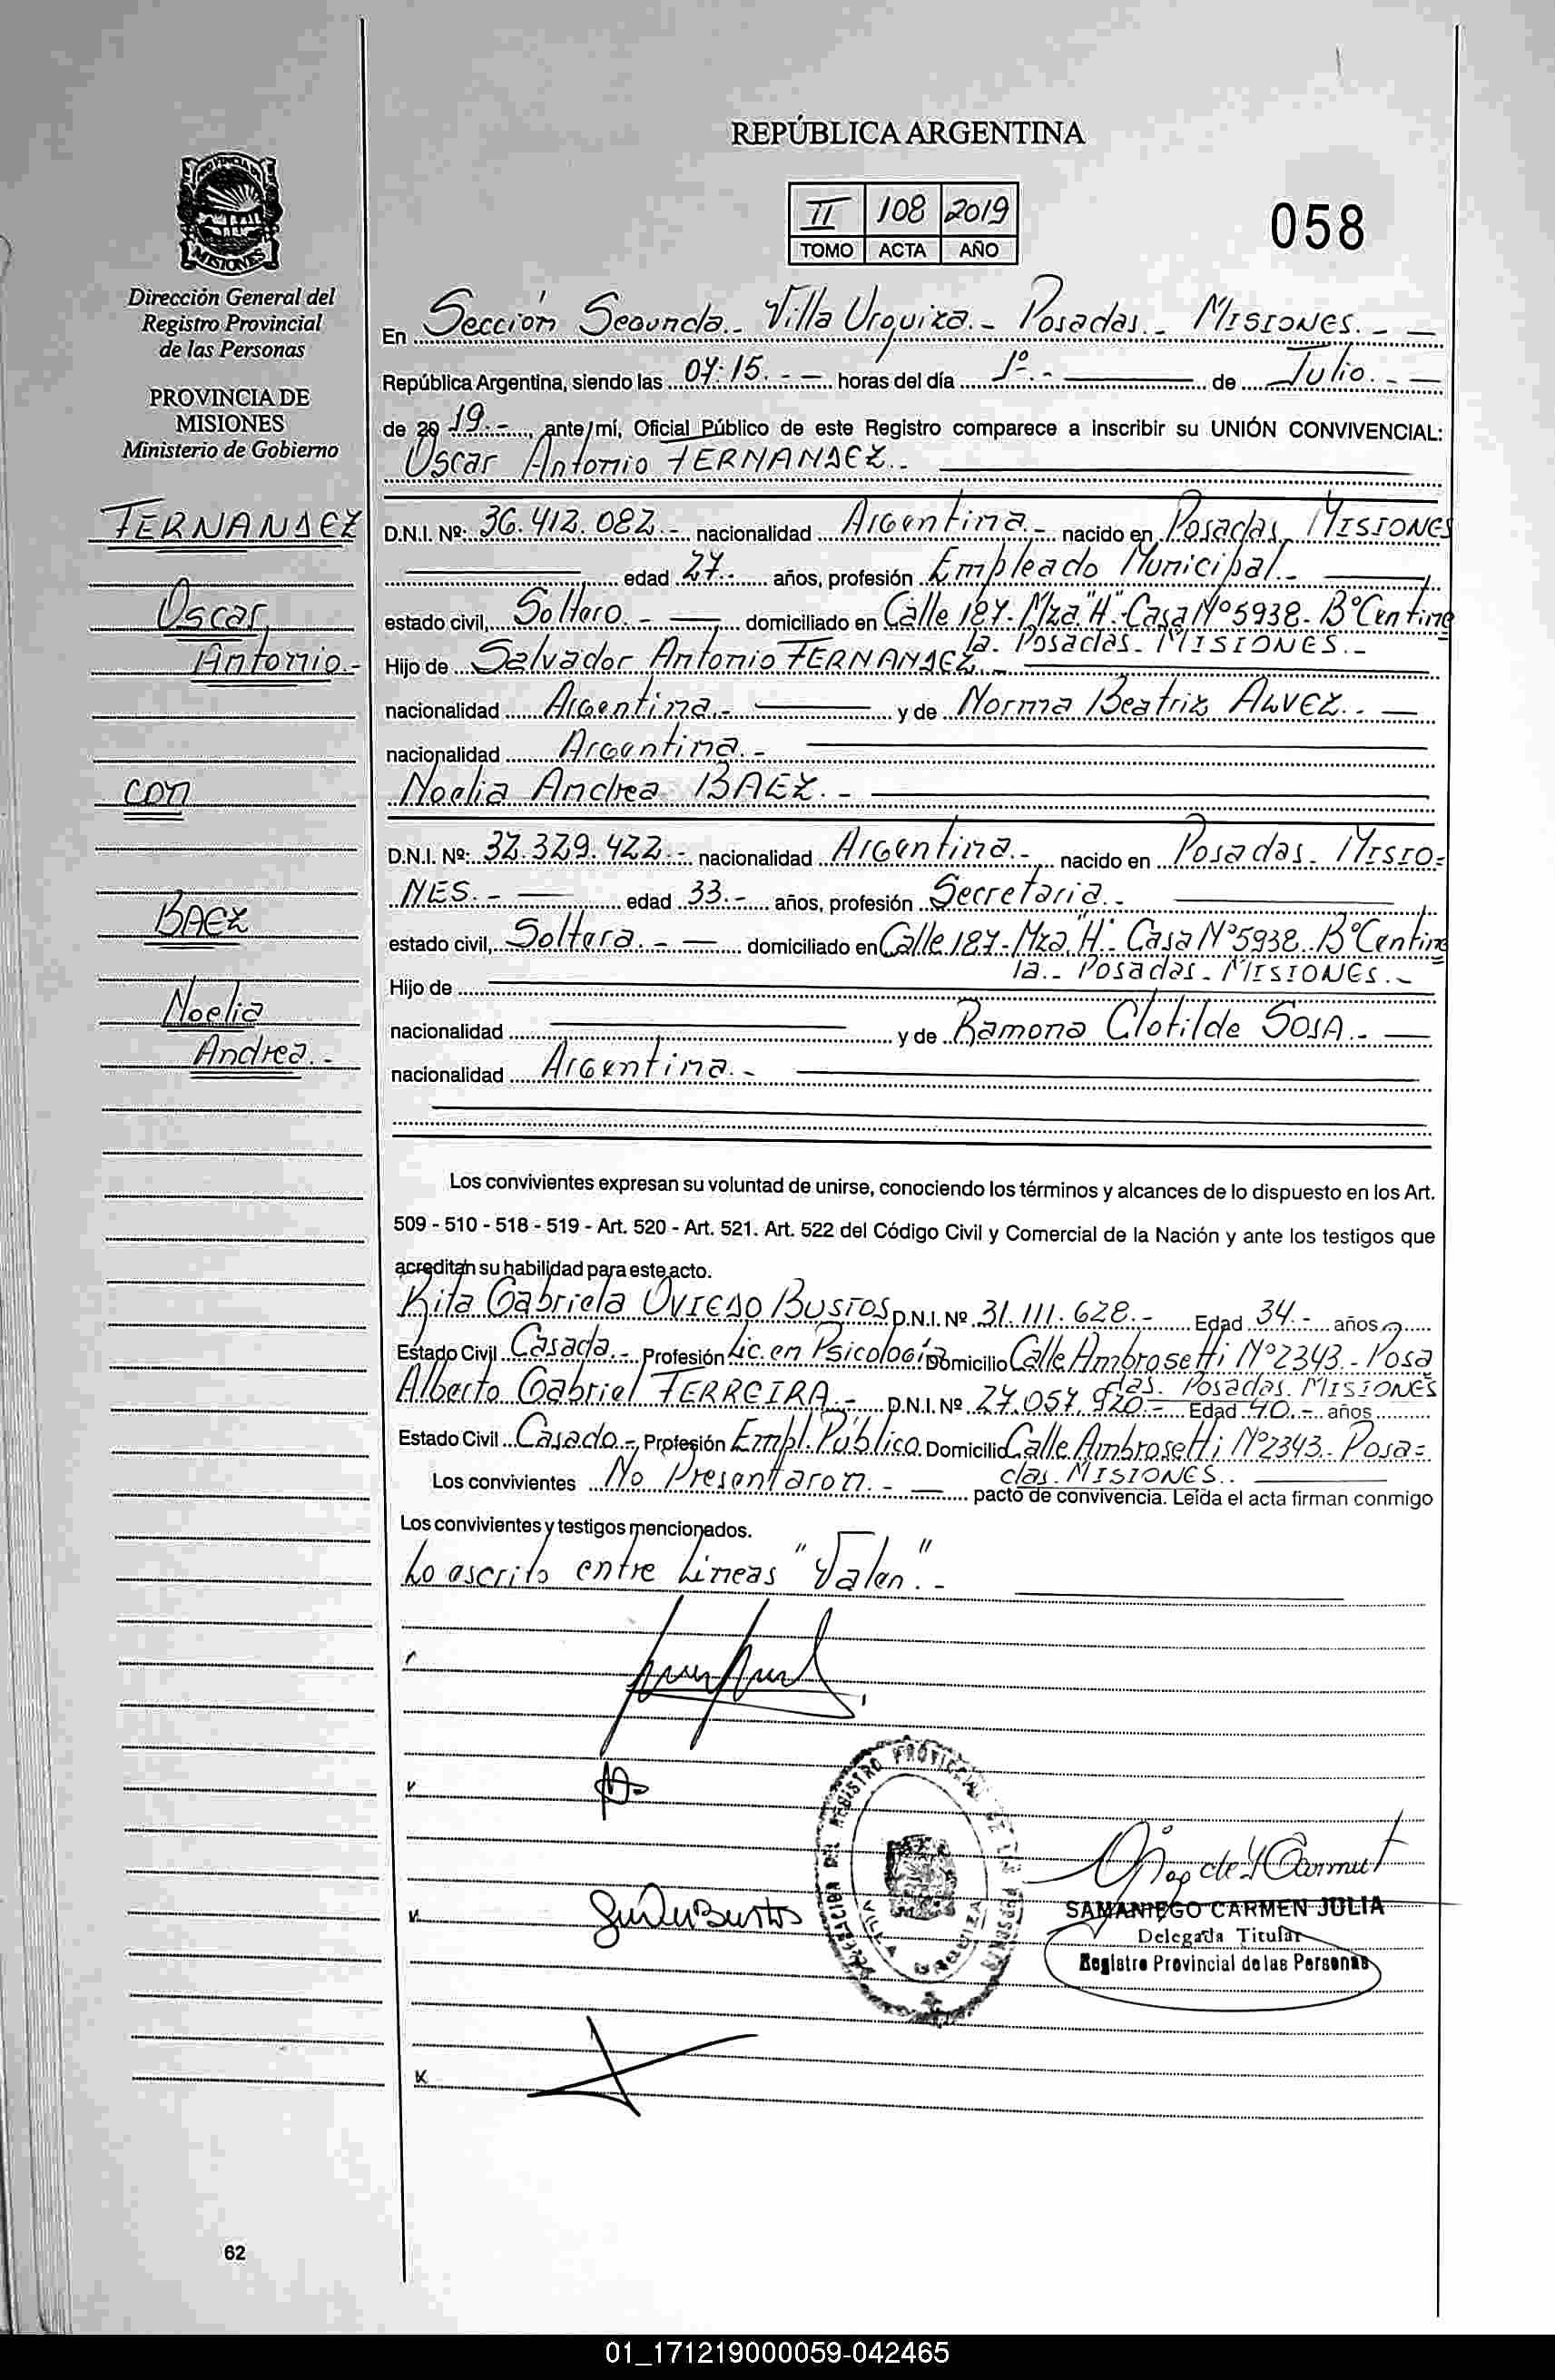 REPÚBLICA ARGENTINA
II 108 2019
TOMO ACTA AÑO
058
PROVINCIA DE
MISIONES
Dirección General del
Registro Provincial
de las Personas
PROVINCIA DE
MISIONES
Ministerio de Gobierno
FERNANDEZ
Oscar
Antonio.-
con
BAEZ
Noelia
Andrea.-
En Sección Segunda.- Villa Urquiza.- Posadas.- MISIONES.-
República Argentina, siendo las 07:15.- horas del día 1º.- de Julio.-
de 20 19.-, ante mí, Oficial Público de este Registro comparece a inscribir su UNIÓN CONVIVENCIAL:
Oscar Antonio FERNANDEZ.-
D.N.I. Nº: 36.412.082.- nacionalidad Argentina.- nacido en Posadas, MISIONES
edad 27.- años, profesión Empleado Municipal.-
estado civil, Soltero.- domiciliado en Calle 187- Mza "H"- Casa Nº 5938- Bº Centine
la- Posadas- MISIONES.-
Hijo de Salvador Antonio FERNANDEZ.-
nacionalidad Argentina.- y de Norma Beatriz ALVEZ.-
nacionalidad Argentina.-
Noelia Andrea BAEZ.-
D.N.I. Nº: 32.329.422.- nacionalidad Argentina.- nacido en Posadas- MISIO=
NES.- edad 33.- años, profesión Secretaria.-
estado civil, Soltera.- domiciliado en Calle 187- Mza "H"- Casa Nº 5938.- Bº Centine
la.- Posadas- MISIONES.-
Hijo de
nacionalidad y de Ramona Clotilde SOSA.-
nacionalidad Argentina.-
Los convivientes expresan su voluntad de unirse, conociendo los términos y alcances de lo dispuesto en los Art.
509 - 510 - 518 - 519 - Art. 520 - Art. 521. Art. 522 del Código Civil y Comercial de la Nación y ante los testigos que
acreditan su habilidad para este acto.
Rita Gabriela OVIEDO BUSTOS D.N.I. Nº 31.111.628.- Edad 34.- años
Estado Civil Casada.- Profesión Lic. en Psicología Domicilio Calle Ambrosetti Nº 2343.- Posa
das. Posadas. MISIONES
Alberto Gabriel FERREIRA.- D.N.I. Nº 27.057.920.- Edad 40.- años
Estado Civil Casado.- Profesión Empl. Público. Domicilio Calle Ambrosetti Nº 2343.- Posa=
das. MISIONES.-
Los convivientes No Presentaron.- pacto de convivencia. Leída el acta firman conmigo
Los convivientes y testigos mencionados.
Lo escrito entre Líneas "Valen".-
DELEGACION DEL REGISTRO PROVINCIAL DE LAS PERSONAS
VILLA URQUIZA
SAMANIEGO CARMEN JULIA
Delegada Titular
Registro Provincial de las Personas
62
01_171219000059-042465